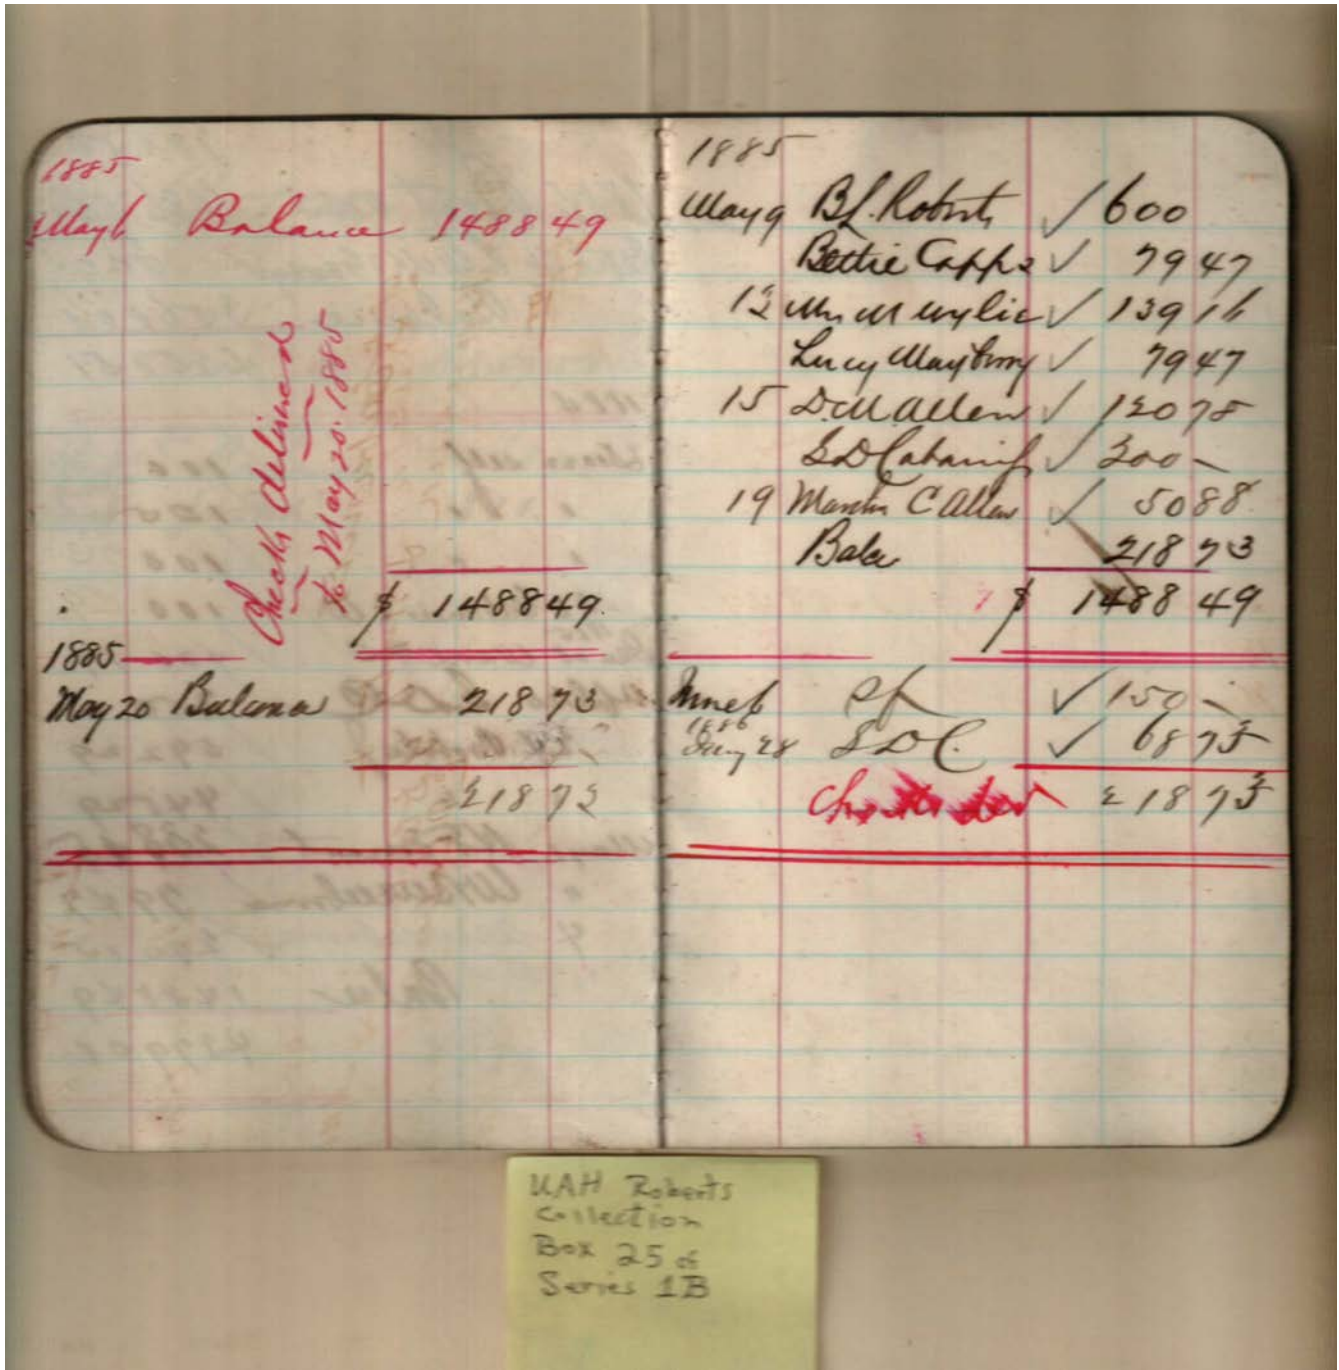 1885
May 6 Balance 1488 49
Checks delivered
to May 20. 1885
$ 1488 49
1885
May 20 Balance 218 73
218 73
1885
May 9 B.L. Roberts ✓ 600
Bettie Capps ✓ 79 47
12 Mrs M Wylie ✓ 139 16
Lucy Mayberry ✓ 79 47
15 D.M. Allen ✓ 120 78
S D Cabaniss ✓ 200 –
19 C Allen ✓ 50 88
Balce 218 73
$ 1488 49
June 6 ✓ 150 –
1886
Jany 28 S D C. ✓ 68 73
218 73
UAH Roberts
Collection
Box 25 of
Series 1B